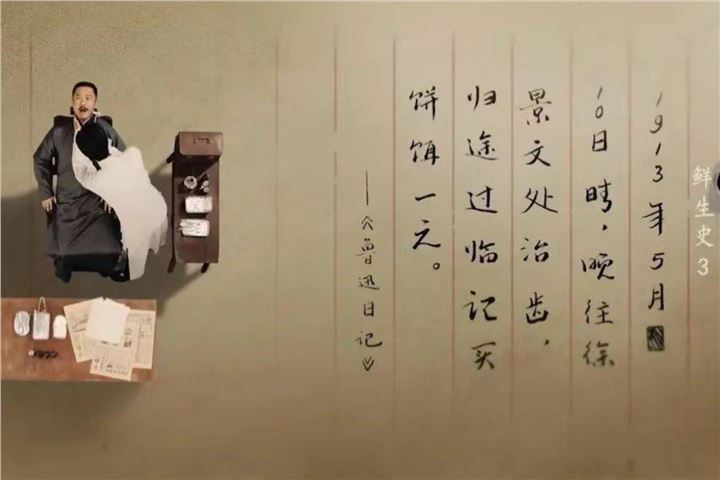 1913年5月
10日晴，晚往徐
景文处治齿，
归途过临记买
饼饵一元。
——《鲁迅日记》
鲜生史3